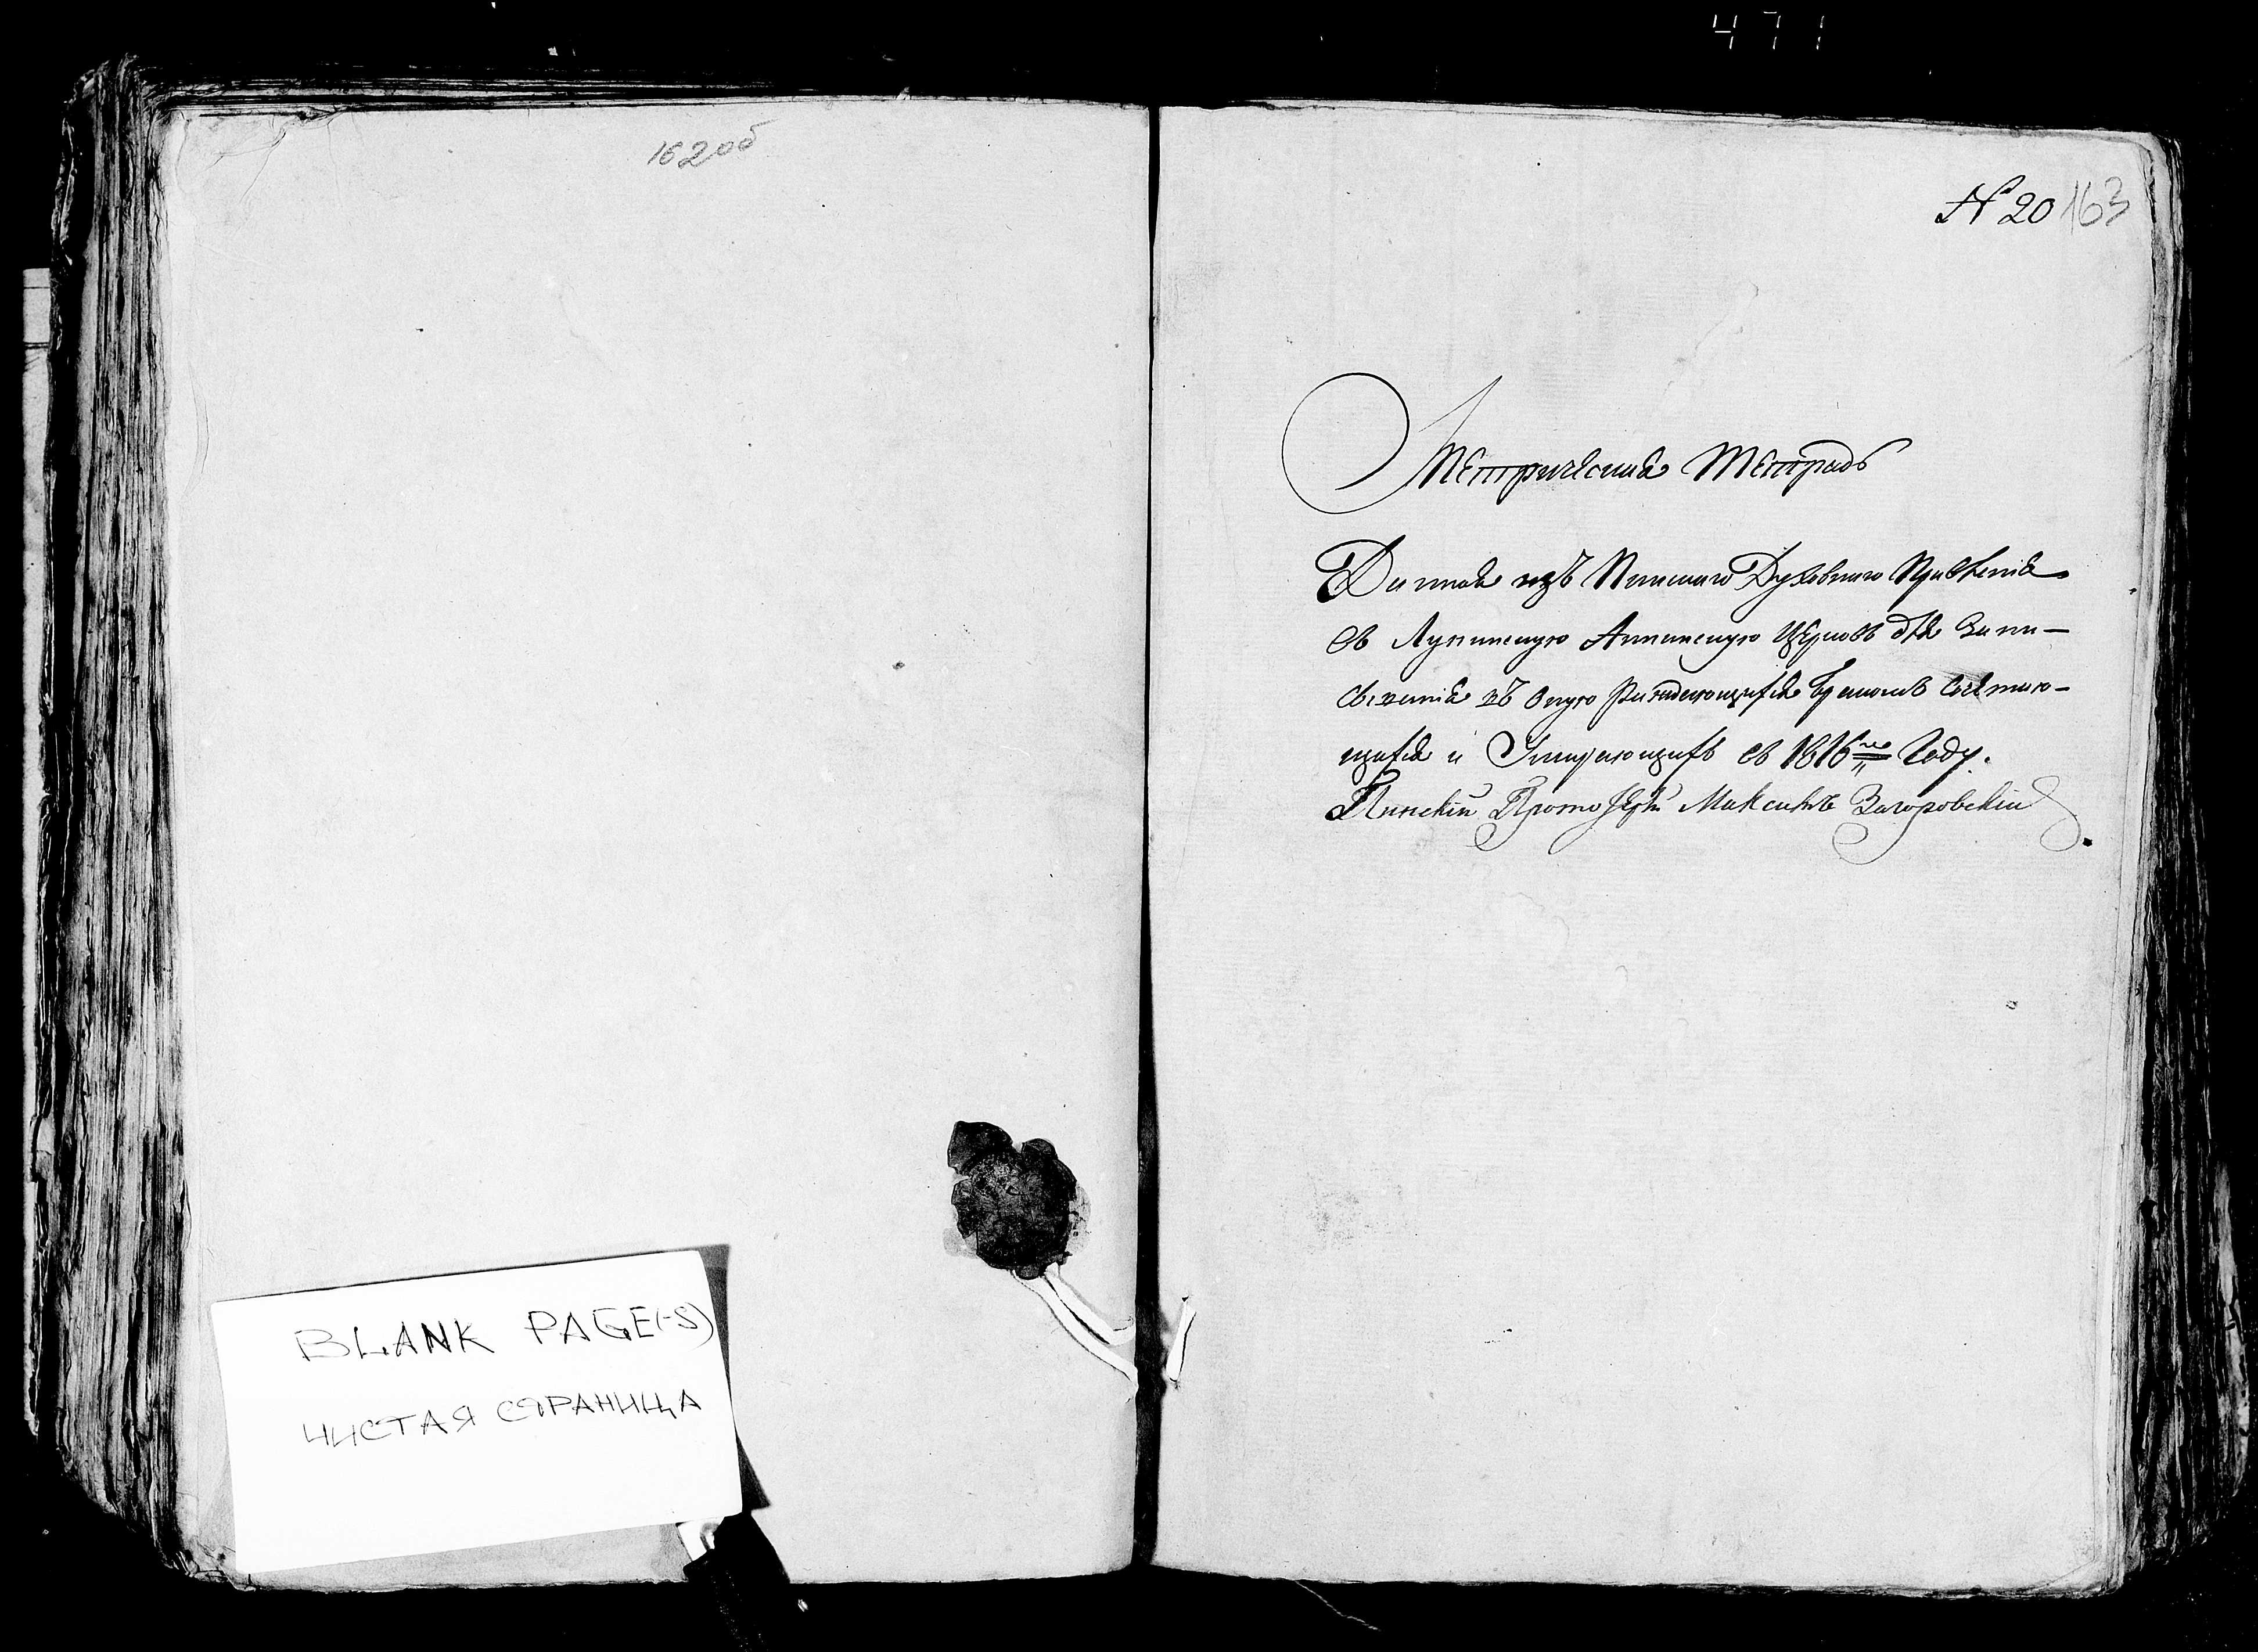 471
162об
N 20 163
Метрическая тетрадь
Данная изъ Пинскаго Духовнаго Правленія
въ Лунинскую Аннинскую Церковь для запи-
сыванія въ оную раждающихся бракомъ сочетаю-
щихся и Умирающихъ въ 1816го Году.
Пинскій Протоіерей Максимъ Загоровскій
BLANK PAGE(-S)
ЧИСТАЯ СТРАНИЦА